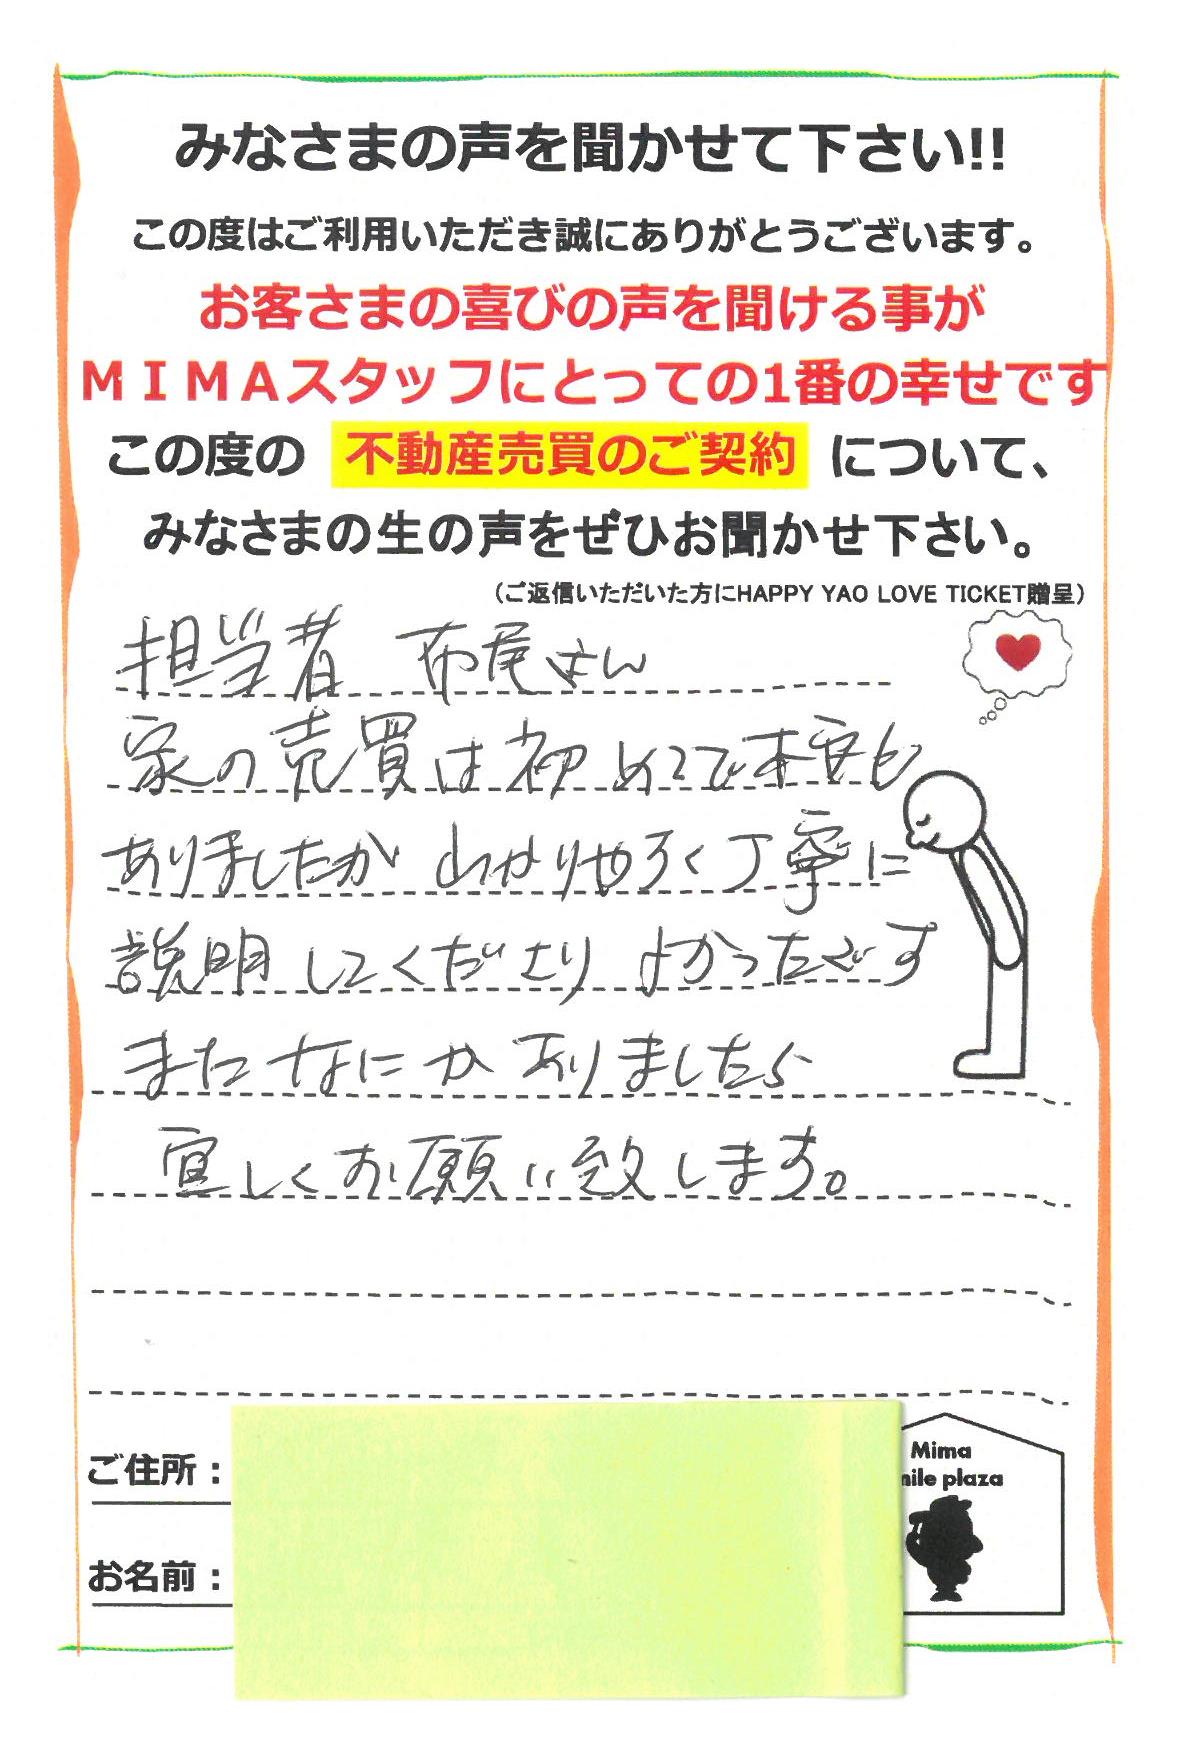 みなさまの声を聞かせて下さい!!
この度はご利用いただき誠にありがとうございます。
お客さまの喜びの声を聞ける事が
ＭＩＭＡスタッフにとっての1番の幸せです
この度の 不動産売買のご契約 について、
みなさまの生の声をぜひお聞かせ下さい。
（ご返信いただいた方にHAPPY YAO LOVE TICKET贈呈）
担当者 布尾さん
家の売買は初めてで不安も
ありましたが わかりやすく丁寧に
説明してくださり よかったです
また なにか ありましたら
宜しくお願い致します。
ご住所：
お名前：
Mima
mile plaza